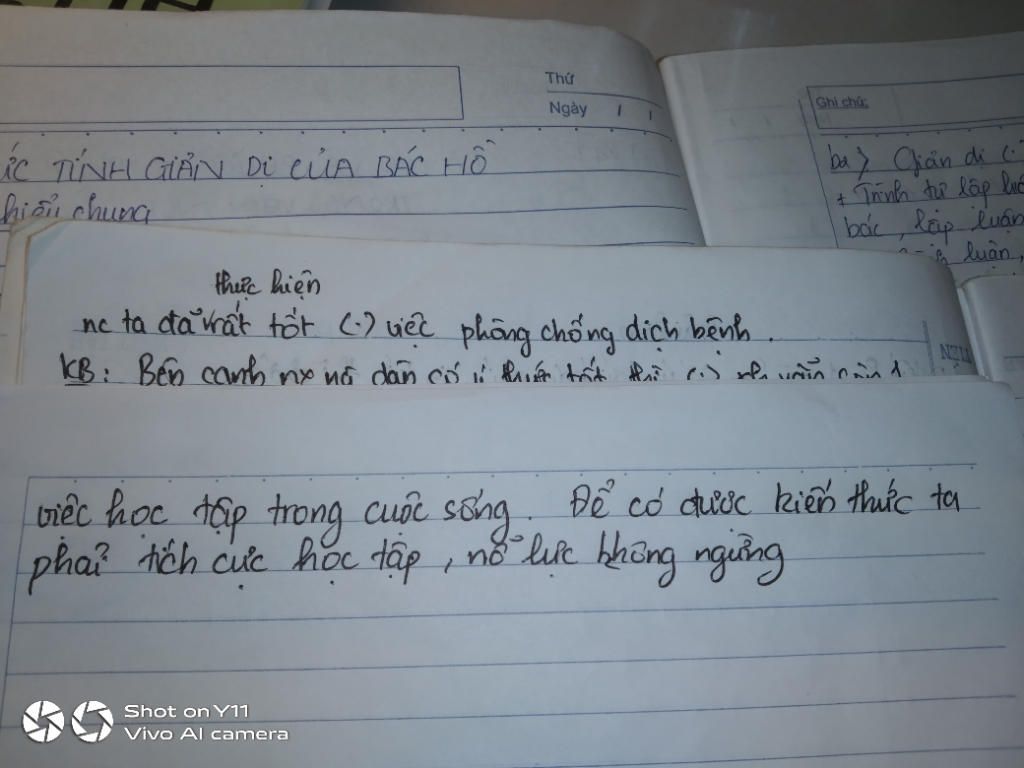 Thứ
Ngày
TÍNH GIẢN DỊ CỦA BÁC HỒ
chung
Ghi chú:
ba) Giản dị
+ Trình tự lập
bác, lập luận
luận,
thực hiện
nc ta đã rất tốt (.) việc phòng chống dịch bệnh.
KB: Bên cạnh dân có
việc học tập trong cuộc sống. Để có được kiến thức ta
phải tích cực học tập, nỗ lực không ngừng
Shot on Y11
Vivo AI camera